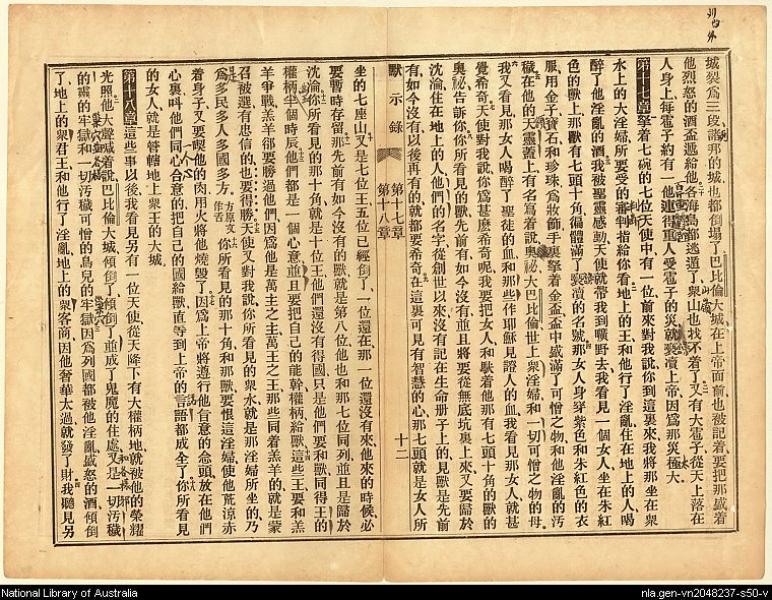 城裂爲三段諸邦的城也都倒塌了巴比倫大城在上帝面前也被記着要把那盛着
他烈怒的酒盃遞給他各海島都逃遁了衆山也找不着了又有大雹子從天上落在
人身上每雹子約有一他連得重人受雹子的災就褻瀆上帝因爲那災極大
第十七章拏着七碗的七位天使中有一位前來對我說你到這裏來我將那坐在衆
水上的大淫婦所要受的審判指給你看地上的王和他行了淫亂住在地上的人喝
醉了他淫亂的酒我被聖靈感動天使就帶我到曠野去我看見一個女人坐在朱紅
色的獸上那獸有七頭十角徧體滿了褻瀆的名號那女人身穿紫色和朱紅色的衣
服用金子寶石和珍珠爲妝飾手裏拏着金盃盃中盛滿了可憎之物和他淫亂的汚
穢在他的天靈蓋上有名寫着說奧祕大巴比倫世上衆淫婦和一切可憎之物的母
我又看見那女人喝醉了聖徒的血和那些作耶穌見證人的血我看見那女人就甚
覺希奇天使對我說你爲甚麼希奇呢我要把女人和馱着他那有七頭十角的獸的
奧祕告訴你你所看見的獸先前有如今沒有並且將要從無底坑裏上來又要歸於
沈淪住在地上的人他們的名字從創世以來沒有記在生命册子上的見獸是先前
有如今沒有以後再有的就都要希奇在這裏可見有智慧的心那七頭就是女人所
默示錄 第十七章 第十八章 十二
坐的七座山又是七位王五位已經倒了一位還在那一位還沒有來他來的時候必
要暫時存留那先前有如今沒有的獸就是第八位他也和那七位同列並且是歸於
沈淪你所看見的那十角就是十位王他們還沒有得國只是他們要和獸同得王的
權柄半個時辰他們都是一個心意並且要把自己的能幹權柄給獸這些王要和羔
羊爭戰羔羊卻要勝過他們因爲他是萬主之主萬王之王那些同着羔羊的就是蒙
召被選有忠信的也要得勝天使又對我說你所看見的衆水就是那淫婦所坐的乃
爲多民多人多國多方方原文作舌你所看見的那十角和那獸要恨這淫婦使他荒涼赤
着身子又要喫他的肉用火將他燒毀了因爲上帝將遵行他旨意的念頭放在他們
心裏叫他們同心合意的把自己的國給獸直等到上帝的言語都成全了你所看見
的女人就是管轄地上衆王的大城
第十八章這些事以後我看見另有一位天使從天降下有大權柄地就被他的榮耀
光照他大聲喊着說巴比倫大城傾倒了傾倒了並成了鬼魔的住處又是一切汚穢
的靈的牢獄和一切汚穢可憎的鳥兒的牢獄因爲列國都被他淫亂盛怒的酒傾倒
了地上的衆君王和他行了淫亂地上的衆客商因他奢華太過就發了財我聽見另
National Library of Australia
nla.gen-vn2048237-s50-v